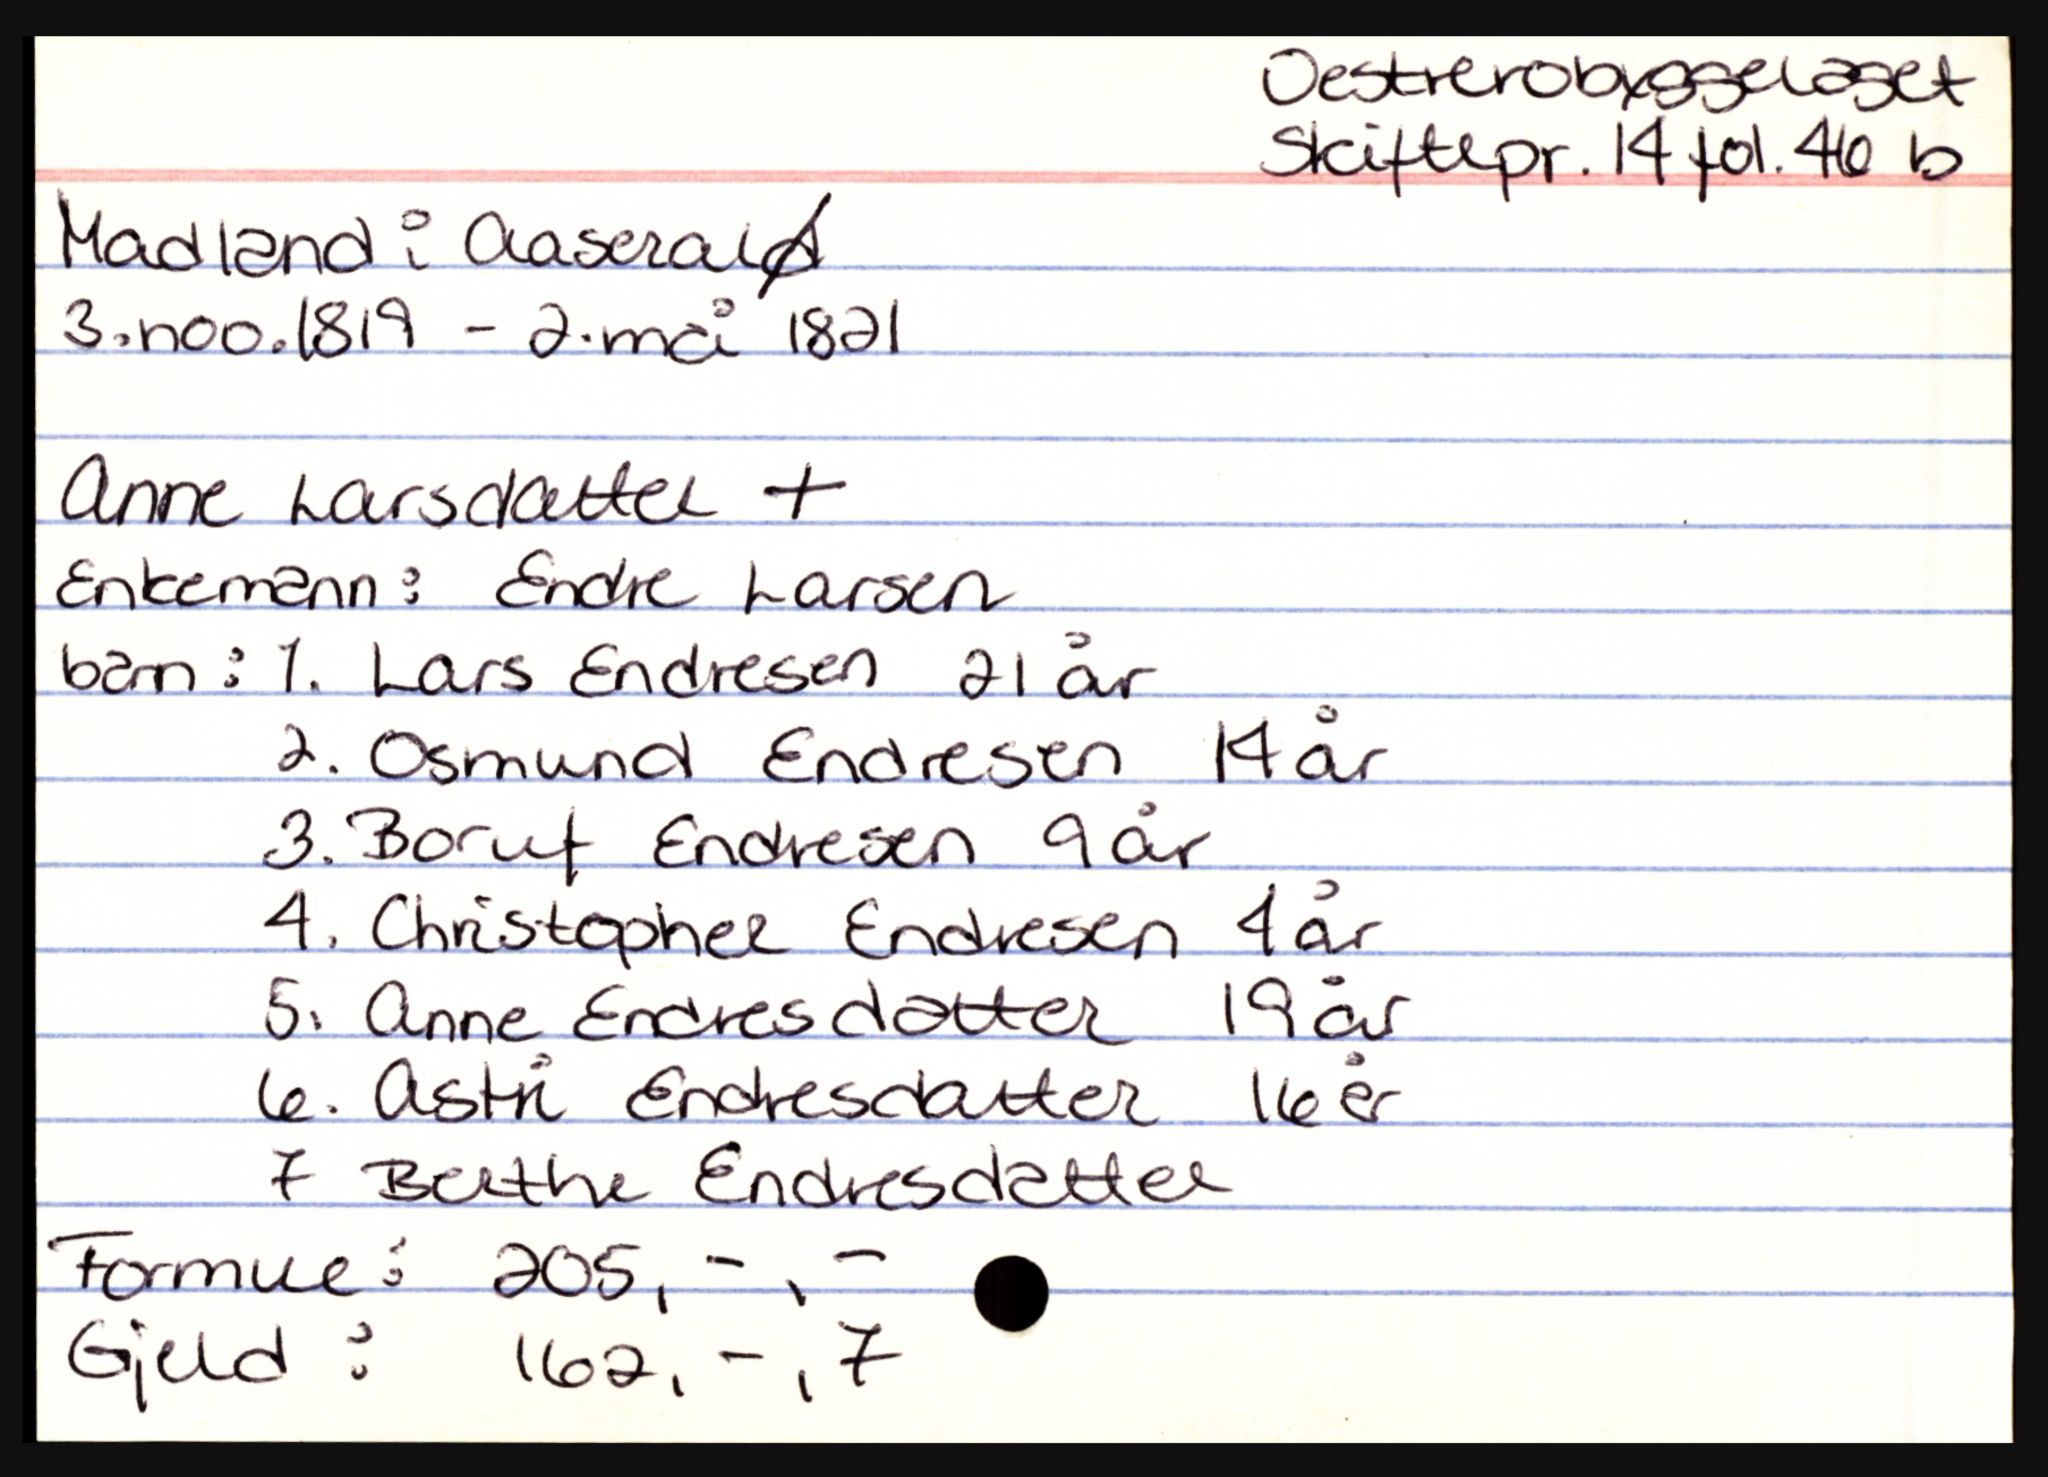 Oestrerobyggelaget
Skiftepr. 14 fol. 46 b
Madland i Aaseral
3.nov.1819 - 2.mai 1821
Anne Larsdatter +
Enkemann: Endre Larsen
barn: 1. Lars Endresen 21 år
2. Osmund Endresen 14 år
3. Boruf Endresen 9 år
4. Christopher Endresen 4 år
5. Anne Endresdatter 19 år
6. Astri Endresdatter 16 år
7 Berthe Endresdatter
Formue: 205, -, -
Gjeld: 162, -, 7